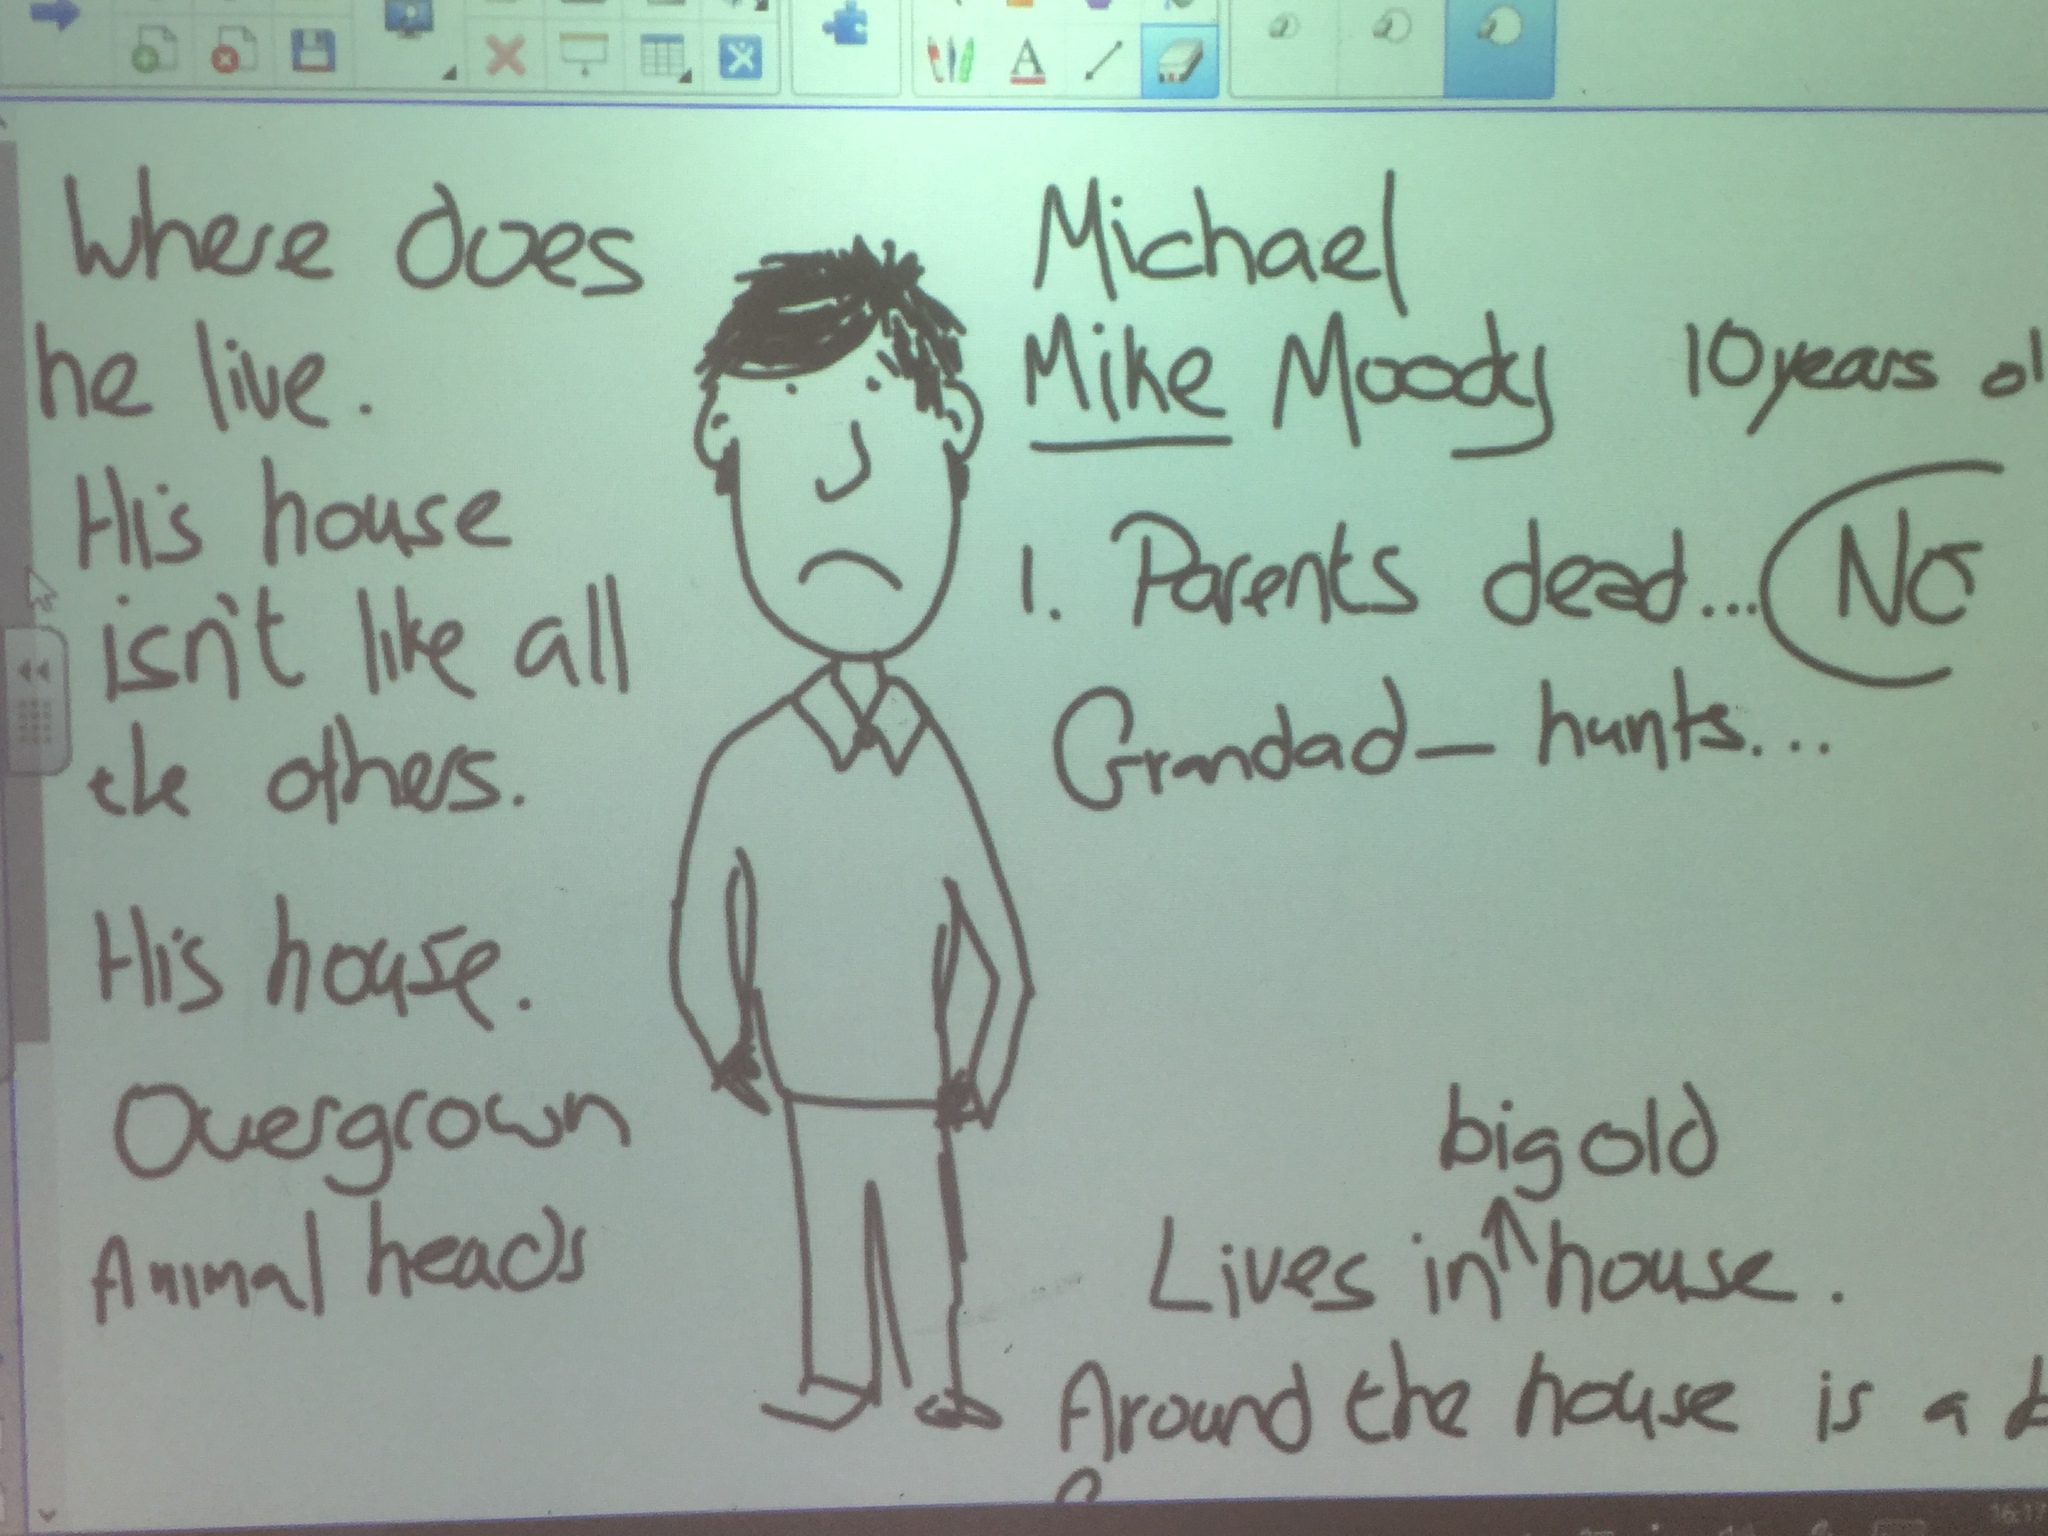 Where does
he live.
His house
isn't like all
the others.
His house.
Overgrown
Animal heads
Michael
Mike Moody 10 years
1. Parents dead... NO
Grandad - hunts...
big old
Lives in ^ house.
Around the house is a